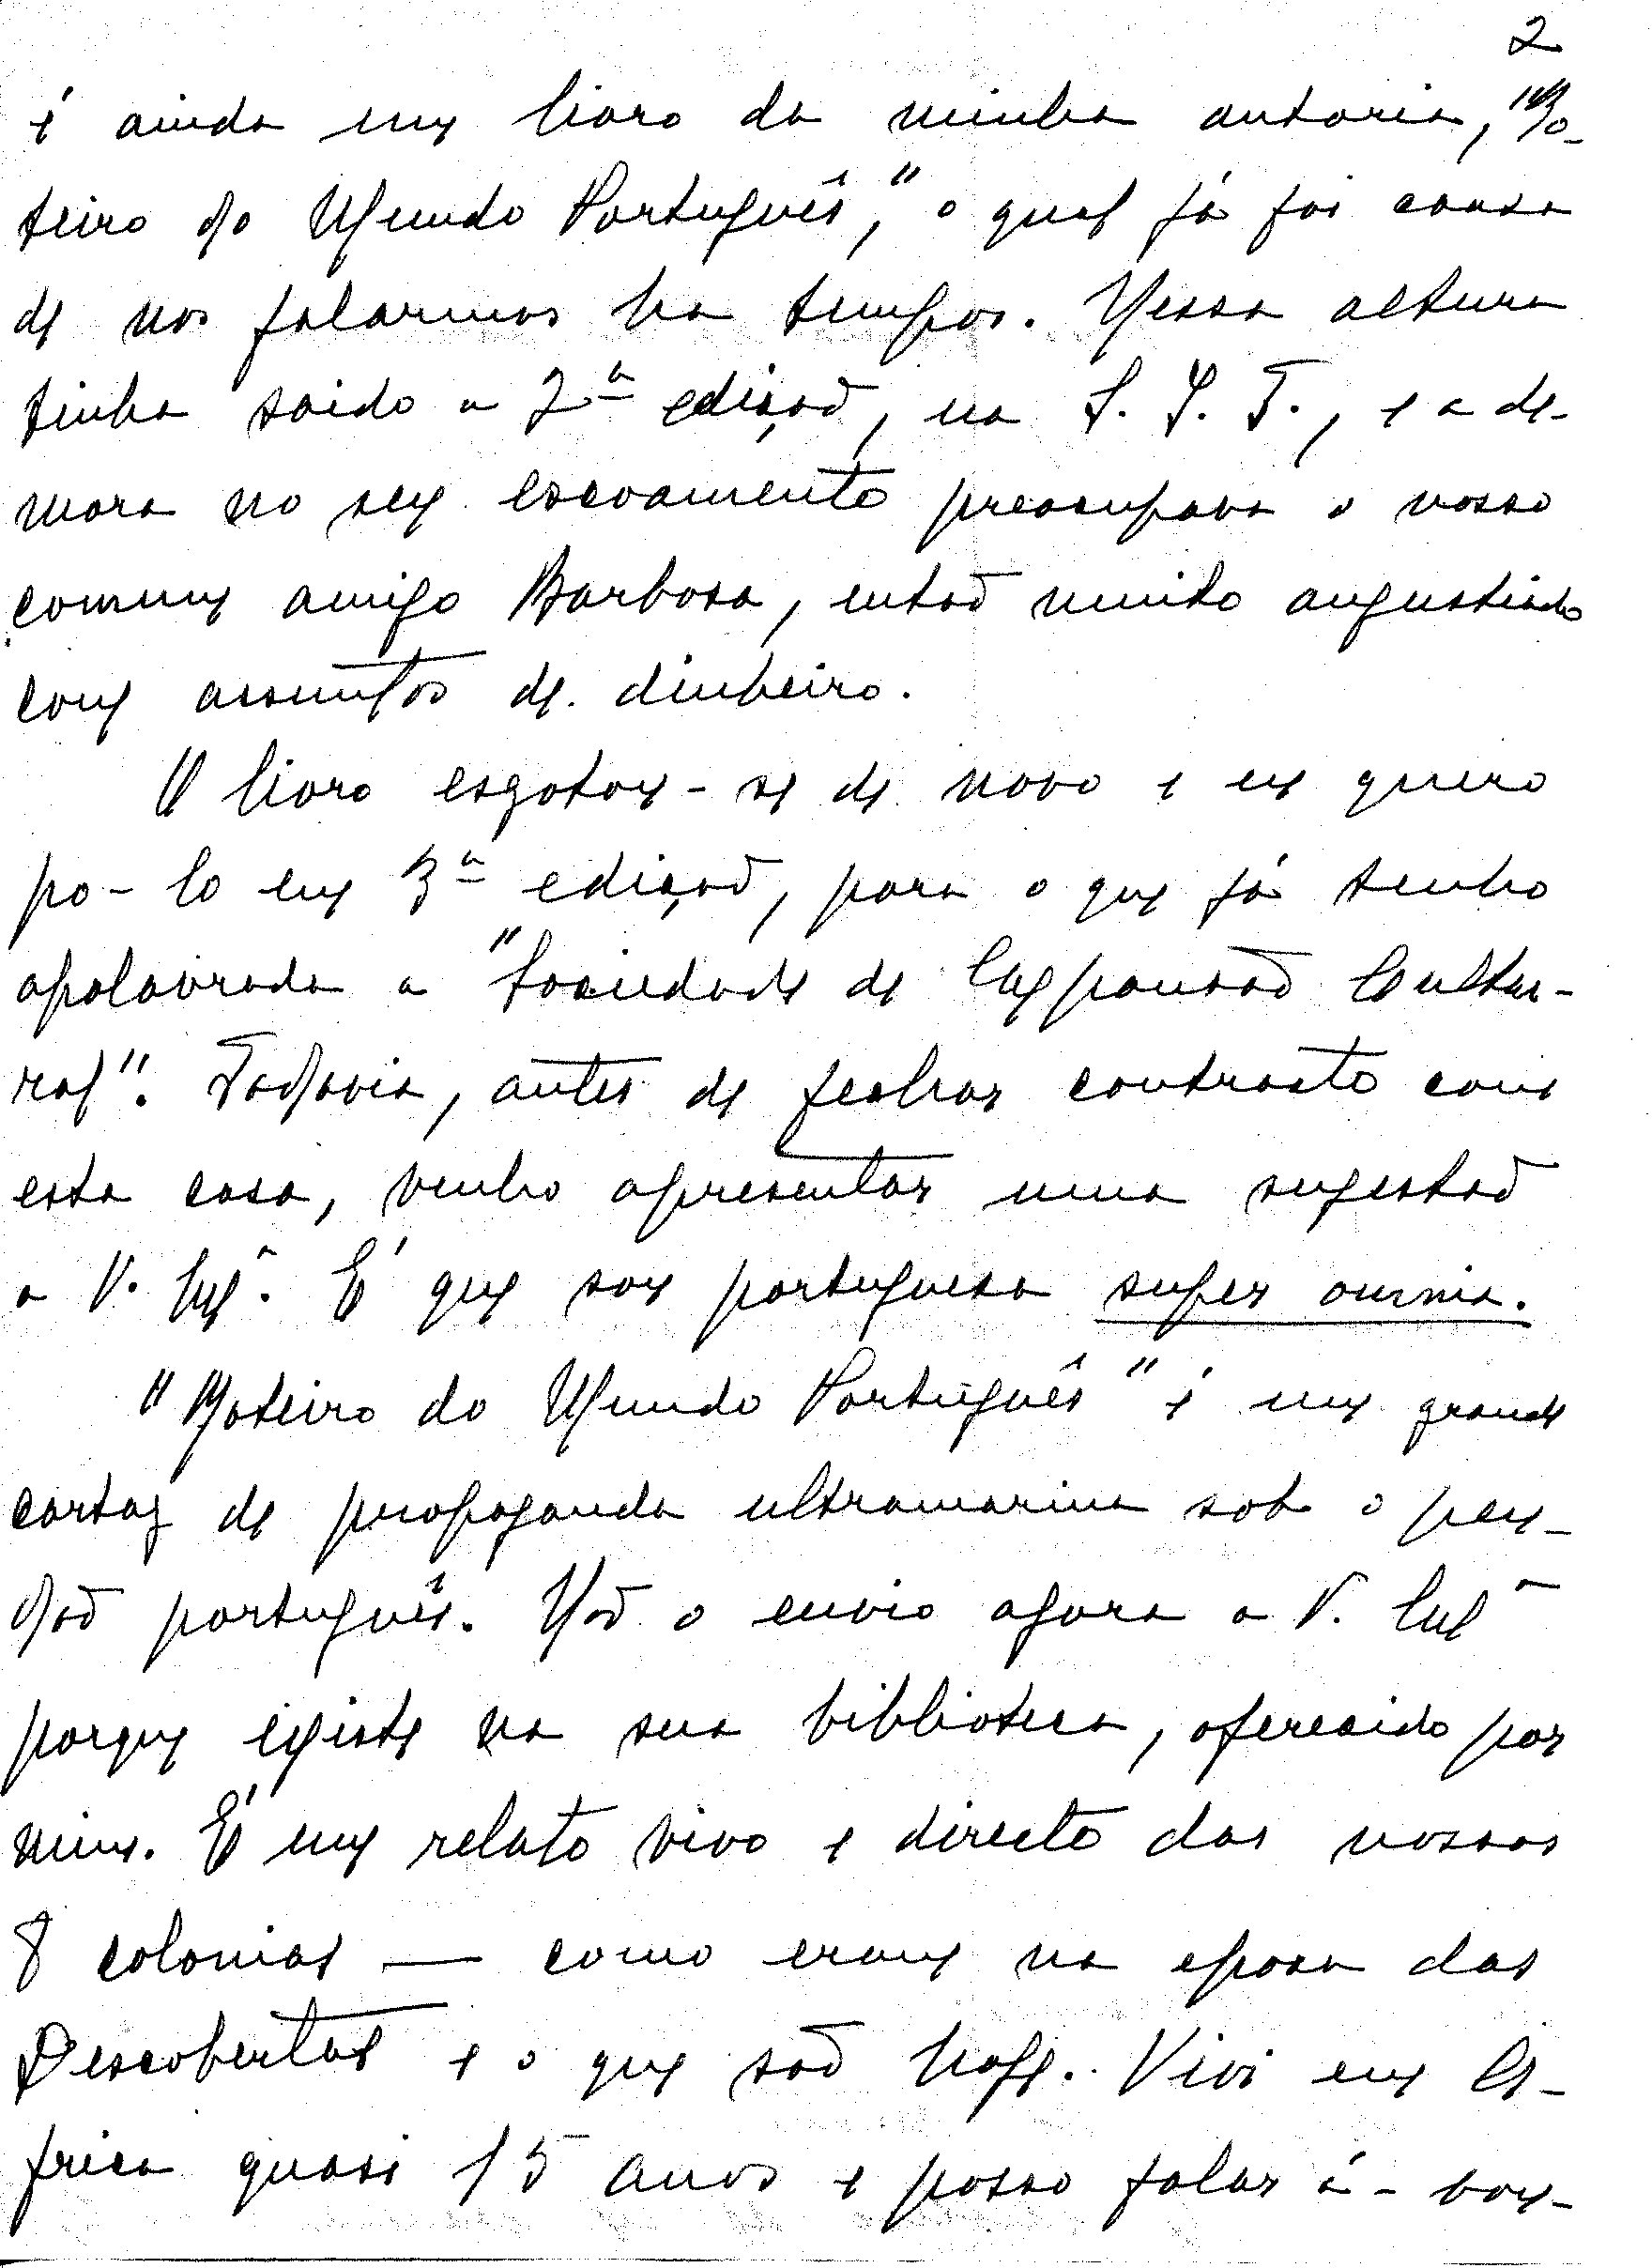 2
é ainda um livro da minha autoria, "Ro-
teiro do Mundo Português", o qual já foi causa
de nos falarmos ha tempos. Nessa altura
tinha saido a 2ª edição, na S. I. T., e a de-
mora no seu escoamento preocupava o nosso
comum amigo Barbosa, então muito angustiado
com assuntos de dinheiro.
O livro esgotou-se de novo e eu quero
po-lo em 3ª edição, para o que já tenho
apalavrada a "Sociedade de Expansão Cultu-
ral". Todavia, antes de fechar contracto com
esta casa, venho apresentar uma sugestão
a V. Exª. É que sou portuguesa super omnia.
"Roteiro do Mundo Português" é um grande
cartaz de propaganda ultramarina sob o pen-
dão português. Não o envio agora a V. Exª
porque existe na sua biblioteca, oferecido por
mim. É um relato vivo e directo das nossas
8 colonias — como eram na epoca das
Descobertas e o que são hoje. Vivi em A-
frica quasi 15 anos e posso falar á-von-